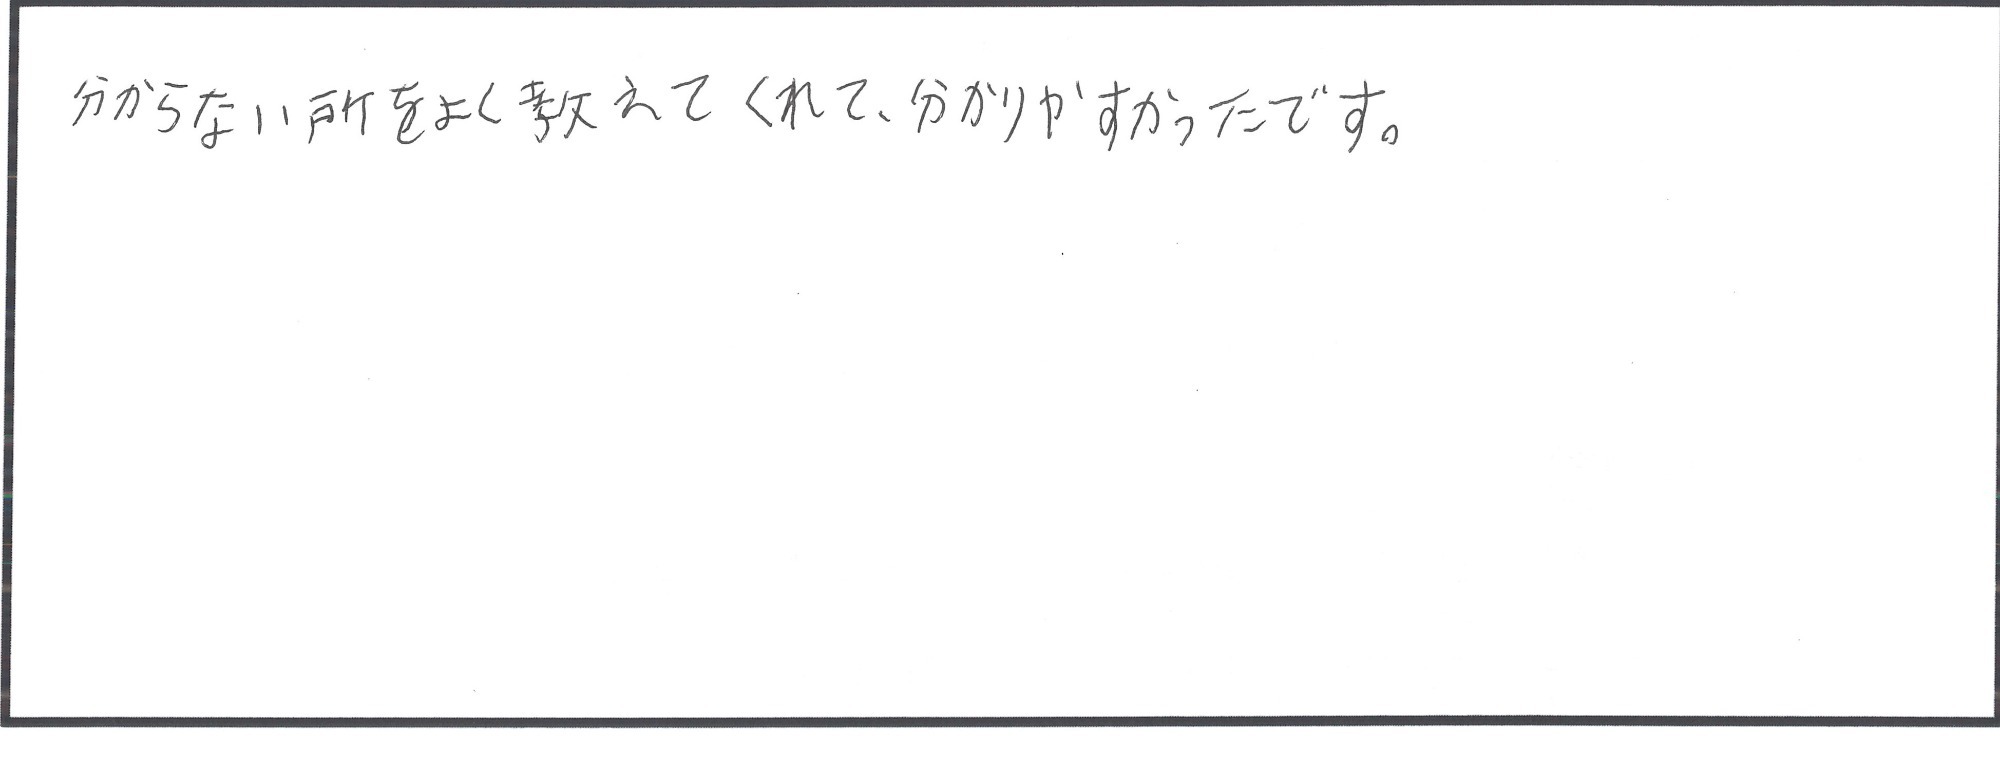 分からない所をよく教えてくれて、分かりやすかったです。